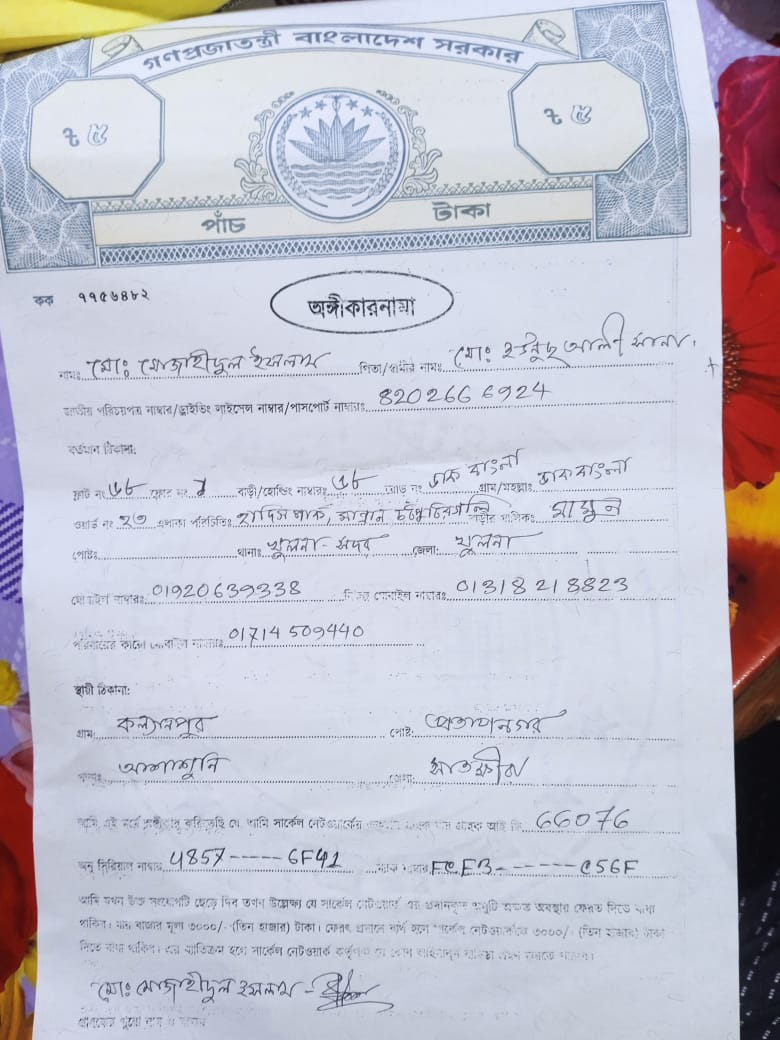 গণপ্রজাতন্ত্রী বাংলাদেশ সরকার
৳ ৫ ৳ ৫
পাঁচ টাকা
কক ৭৭৫৬৪৮২
অঙ্গীকারনামা
নামঃ মোঃ মোজাহীদুল ইসলাম পিতা/স্বামীর নামঃ মোঃ ইউনুছ আলী সানা
জাতীয় পরিচয়পত্র নাম্বার/ড্রাইভিং লাইসেন্স নাম্বার/পাসপোর্ট নাম্বারঃ 8202666924
বর্তমান ঠিকানা:
ফ্লাট নং ফ্লোর নং বাড়ী/হোল্ডিং নাম্বারঃ রোড নং ডাক বাংলা গ্রাম/মহল্লাঃ ডাকবাংলা
ওয়ার্ড নং ২৩ এলাকা পরিচিতিঃ হাদিস পার্ক, বাড়ীর মালিকঃ মামুন
পোষ্টঃ থানাঃ খুলনা-সদর জেলা: খুলনা
মোবাইল নাম্বারঃ 01920639338 বিকল্প মোবাইল নাম্বারঃ 01318218823
পরিবারের কারো মোবাইল নাম্বারঃ 01714509440
স্থায়ী ঠিকানা:
গ্রাম: কল্যানপুর পোষ্ট: প্রতাপনগর
থানাঃ আশাশুনি জেলা: সাতক্ষীরা
আমি এই মর্মে অঙ্গীকার করিতেছি যে, আমি সার্কেল নেটওয়ার্কের একজন গ্রাহক যার গ্রাহক আই ডি 66076
অনু সিরিয়াল নাম্বার 4857-----6F41 ম্যাক নাম্বার FCE3------C56F
আমি যখন উক্ত সংযোগটি ছেড়ে দিব তখন উল্লেখ্য যে সার্কেল নেটওয়ার্ক এর প্রদানকৃত অনুটি অক্ষত অবস্থায় ফেরত দিতে বাধ্য
থাকিব। যার বাজার মূল্য ৩০০০/- (তিন হাজার) টাকা। ফেরৎ প্রদানে ব্যর্থ হলে সার্কেল নেটওয়ার্ককে ৩০০০/- (তিন হাজার) টাকা
দিতে বাধ্য থাকিব। এর ব্যতিক্রম হলে সার্কেল নেটওয়ার্ক কর্তৃপক্ষ যে কোন আইনানুগ ব্যবস্থা গ্রহন করতে পারবে।
মোঃ মোজাহীদুল ইসলাম
গ্রাহকের পুরো নাম ও স্বাক্ষর